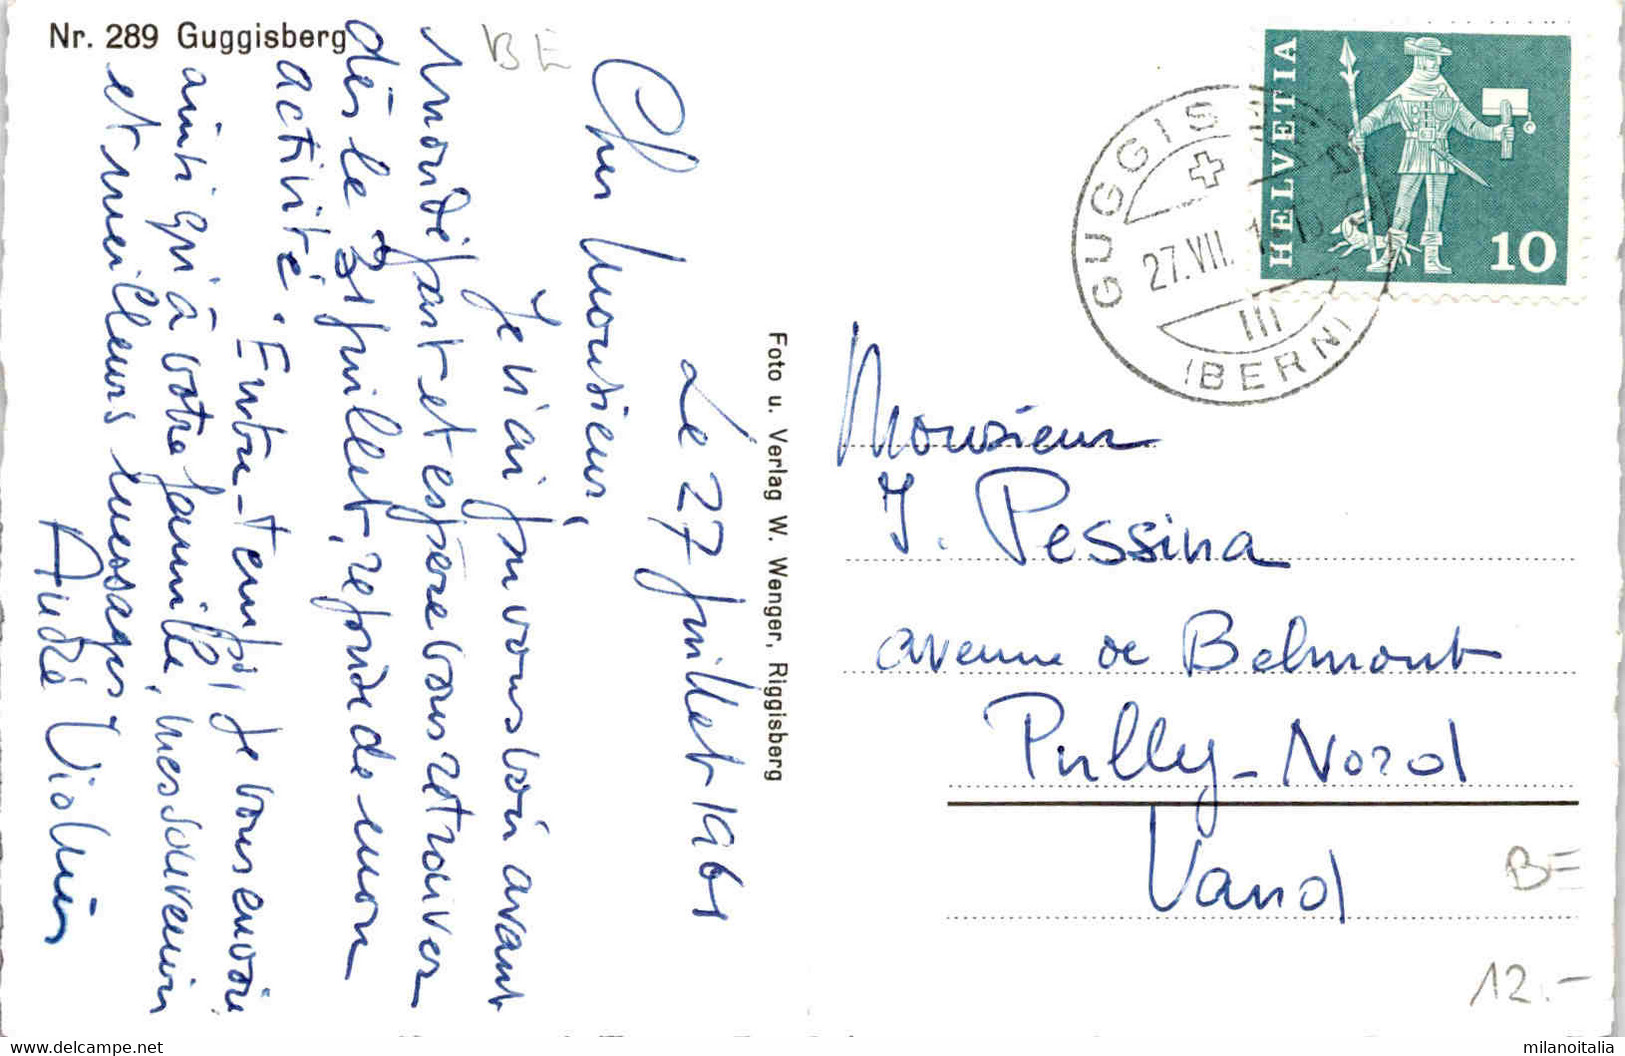 Nr. 289 Guggisberg
BE
Le 27 juillet 1961
Cher Monsieur,
Je n'ai pu vous voir avant
mon départ et espère vous retrouver
dès le 31 juillet, reprise de mon
activité. Entre-temps, je vous envoie
ainsi qu'à votre famille, mes souvenirs
et meilleurs messages
André
Foto u. Verlag W. Wenger, Riggisberg
HELVETIA
10
GUGGISBERG
27.VII.
(BERN)
Monsieur
J. Pessina
avenue de Belmont
Pully-Nord
Vaud
BE
12.-
milanoitalia